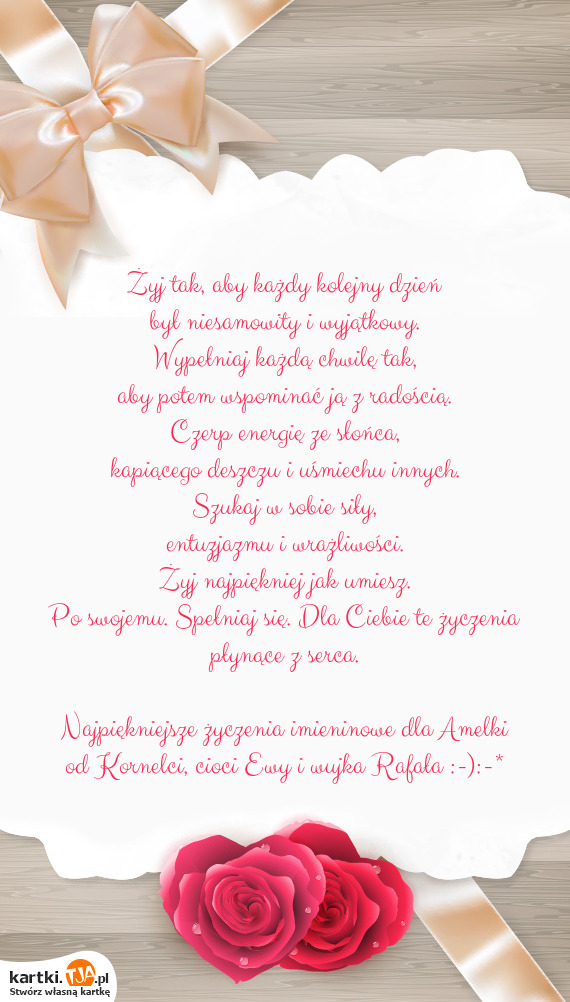 Żyj tak, aby każdy kolejny dzień
był niesamowity i wyjątkowy.
Wypełniaj każdą chwilę tak,
aby potem wspominać ją z radością.
Czerp energię ze słońca,
kapiącego deszczu i uśmiechu innych.
Szukaj w sobie siły,
entuzjazmu i wrażliwości.
Żyj najpiękniej jak umiesz.
Po swojemu. Spełniaj się. Dla Ciebie te życzenia
płynące z serca.
Najpiękniejsze życzenia imieninowe dla Amelki
od Kornelci, cioci Ewy i wujka Rafała :-):-*
kartki.TJA.pl
Stwórz własną kartkę